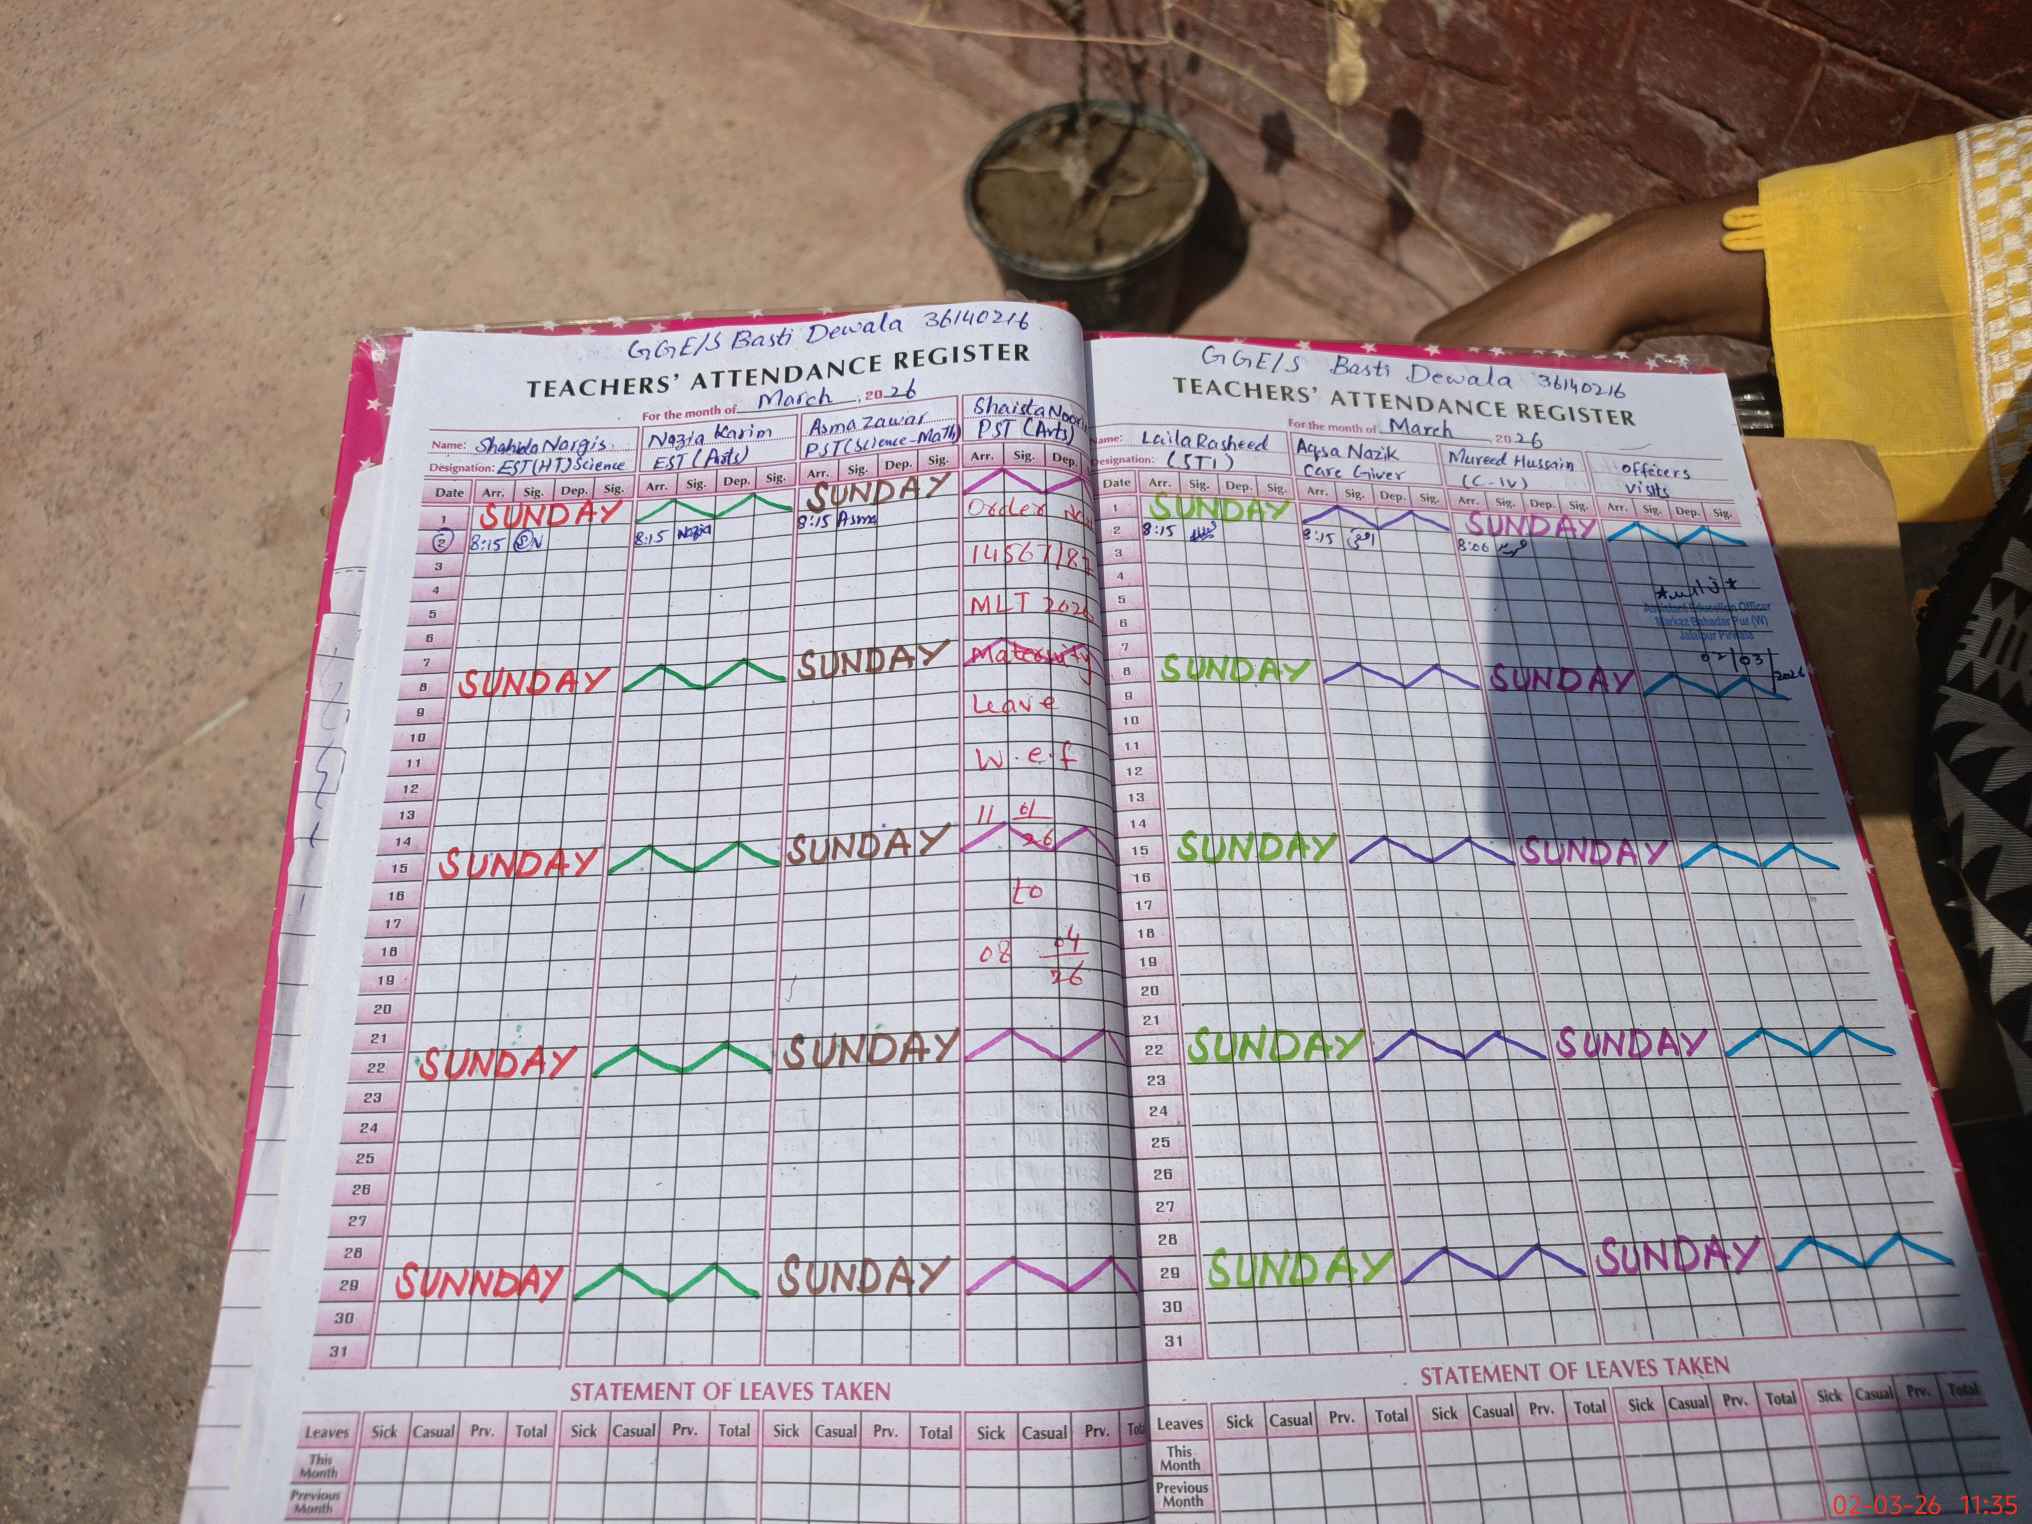 GGE/S Basti Dewala 36140216
TEACHERS' ATTENDANCE REGISTER
For the month of March, 2026
Name: Shahida Nargis Nazia Karim Asma Zawar Shaista Noor
Designation: EST(HT)Science EST (Arts) PST(Science-Math) PST (Arts)
Date Arr. Sig. Dep. Sig. Arr. Sig. Dep. Sig. Arr. Sig. Dep. Sig. Arr. Sig. Dep.
1 SUNDAY SUNDAY
2 8:15 SN 8:15 Nazia 8:15 Asma
Order No
3
14567/87
4
5
MLT 2026
6
7
Maternity
8 SUNDAY SUNDAY
9
Leave
10
11
W.e.f
12
13
11 01
26
14
15 SUNDAY SUNDAY
16
to
17
18
08 04
26
19
20
21
22 SUNDAY SUNDAY
23
24
25
26
27
28
29 SUNNDAY SUNDAY
30
31
STATEMENT OF LEAVES TAKEN
Leaves Sick Casual Prv. Total Sick Casual Prv. Total Sick Casual Prv. Total Sick Casual Prv.
This Month
Previous Month
GGE/S Basti Dewala 36140216
TEACHERS' ATTENDANCE REGISTER
For the month of March 2026
Name: Laila Rasheed Aqsa Nazik Mureed Hussain officers
Designation: (STI) Care Giver (C-IV) Visits
Date Arr. Sig. Dep. Sig. Arr. Sig. Dep. Sig. Arr. Sig. Dep. Sig. Arr. Sig. Dep. Sig.
1 SUNDAY SUNDAY
2 8:15 8:15 8:06
3
4
5
Assistant Education Officer
6
Markaz Bahadar Pur (W)
Jalalpur Pirwala
7
02/03/2026
8 SUNDAY SUNDAY
9
10
11
12
13
14
15 SUNDAY SUNDAY
16
17
18
19
20
21
22 SUNDAY SUNDAY
23
24
25
26
27
28
29 SUNDAY SUNDAY
30
31
STATEMENT OF LEAVES TAKEN
Leaves Sick Casual Prv. Total Sick Casual Prv. Total Sick Casual Prv. Total Sick Casual Prv. Total
This Month
Previous Month
02-03-26 11:35